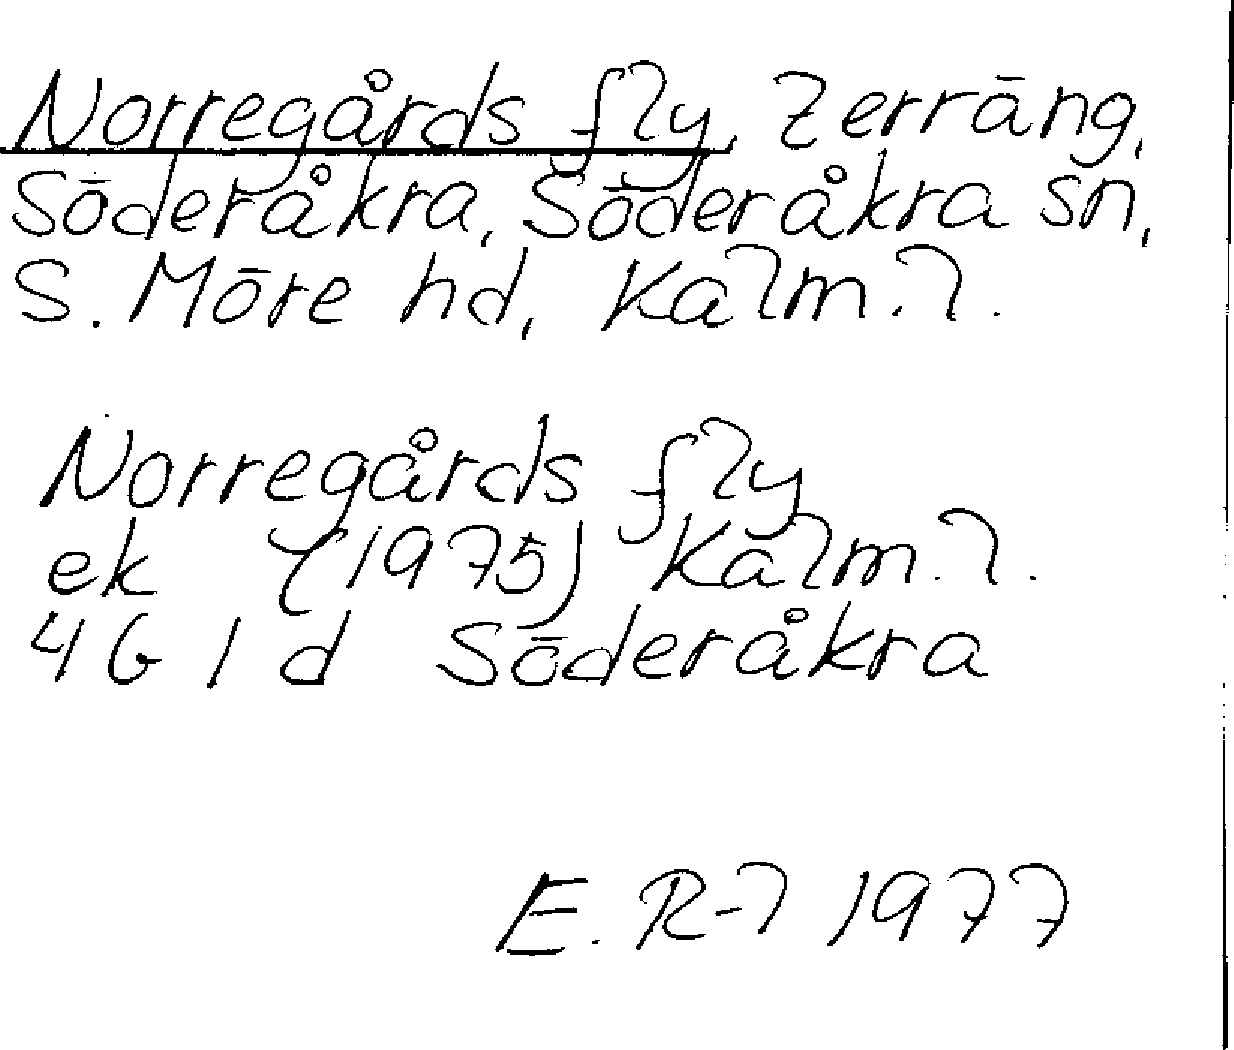 Norregårds fly, terräng,
Söderåkra, Söderåkra sn,
S. Möre hd, Kalm.l.
Norregårds fly
ek (1975) Kalm.l.
4G 1 d Söderåkra
E. R-l 1977